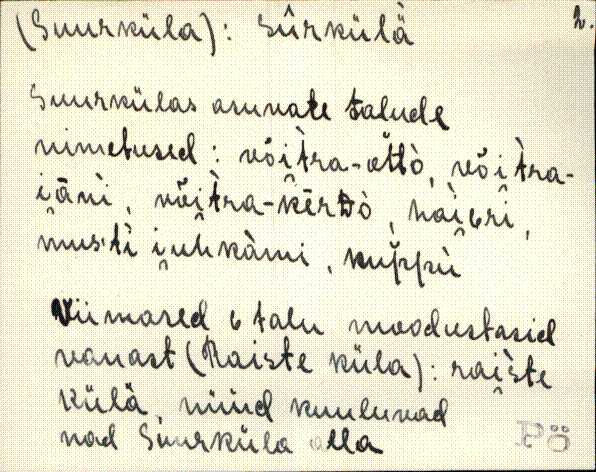 (Suurküla): sūrkülä̀ 2.
Suurkülas asuvate talude
nimetused: või̯t̀ra-ot̆tò, või̯t̀ra-
i̯ānì, või̯t̀ra-kērDò,
musti̇̀ i̯uhkàmi, kup̆pù
Viimased 6 talu moodustasid
vanast (Raiste küla): rai̯s̀te
külä, nüüd kuuluvad
nad Suurküla alla
Pö